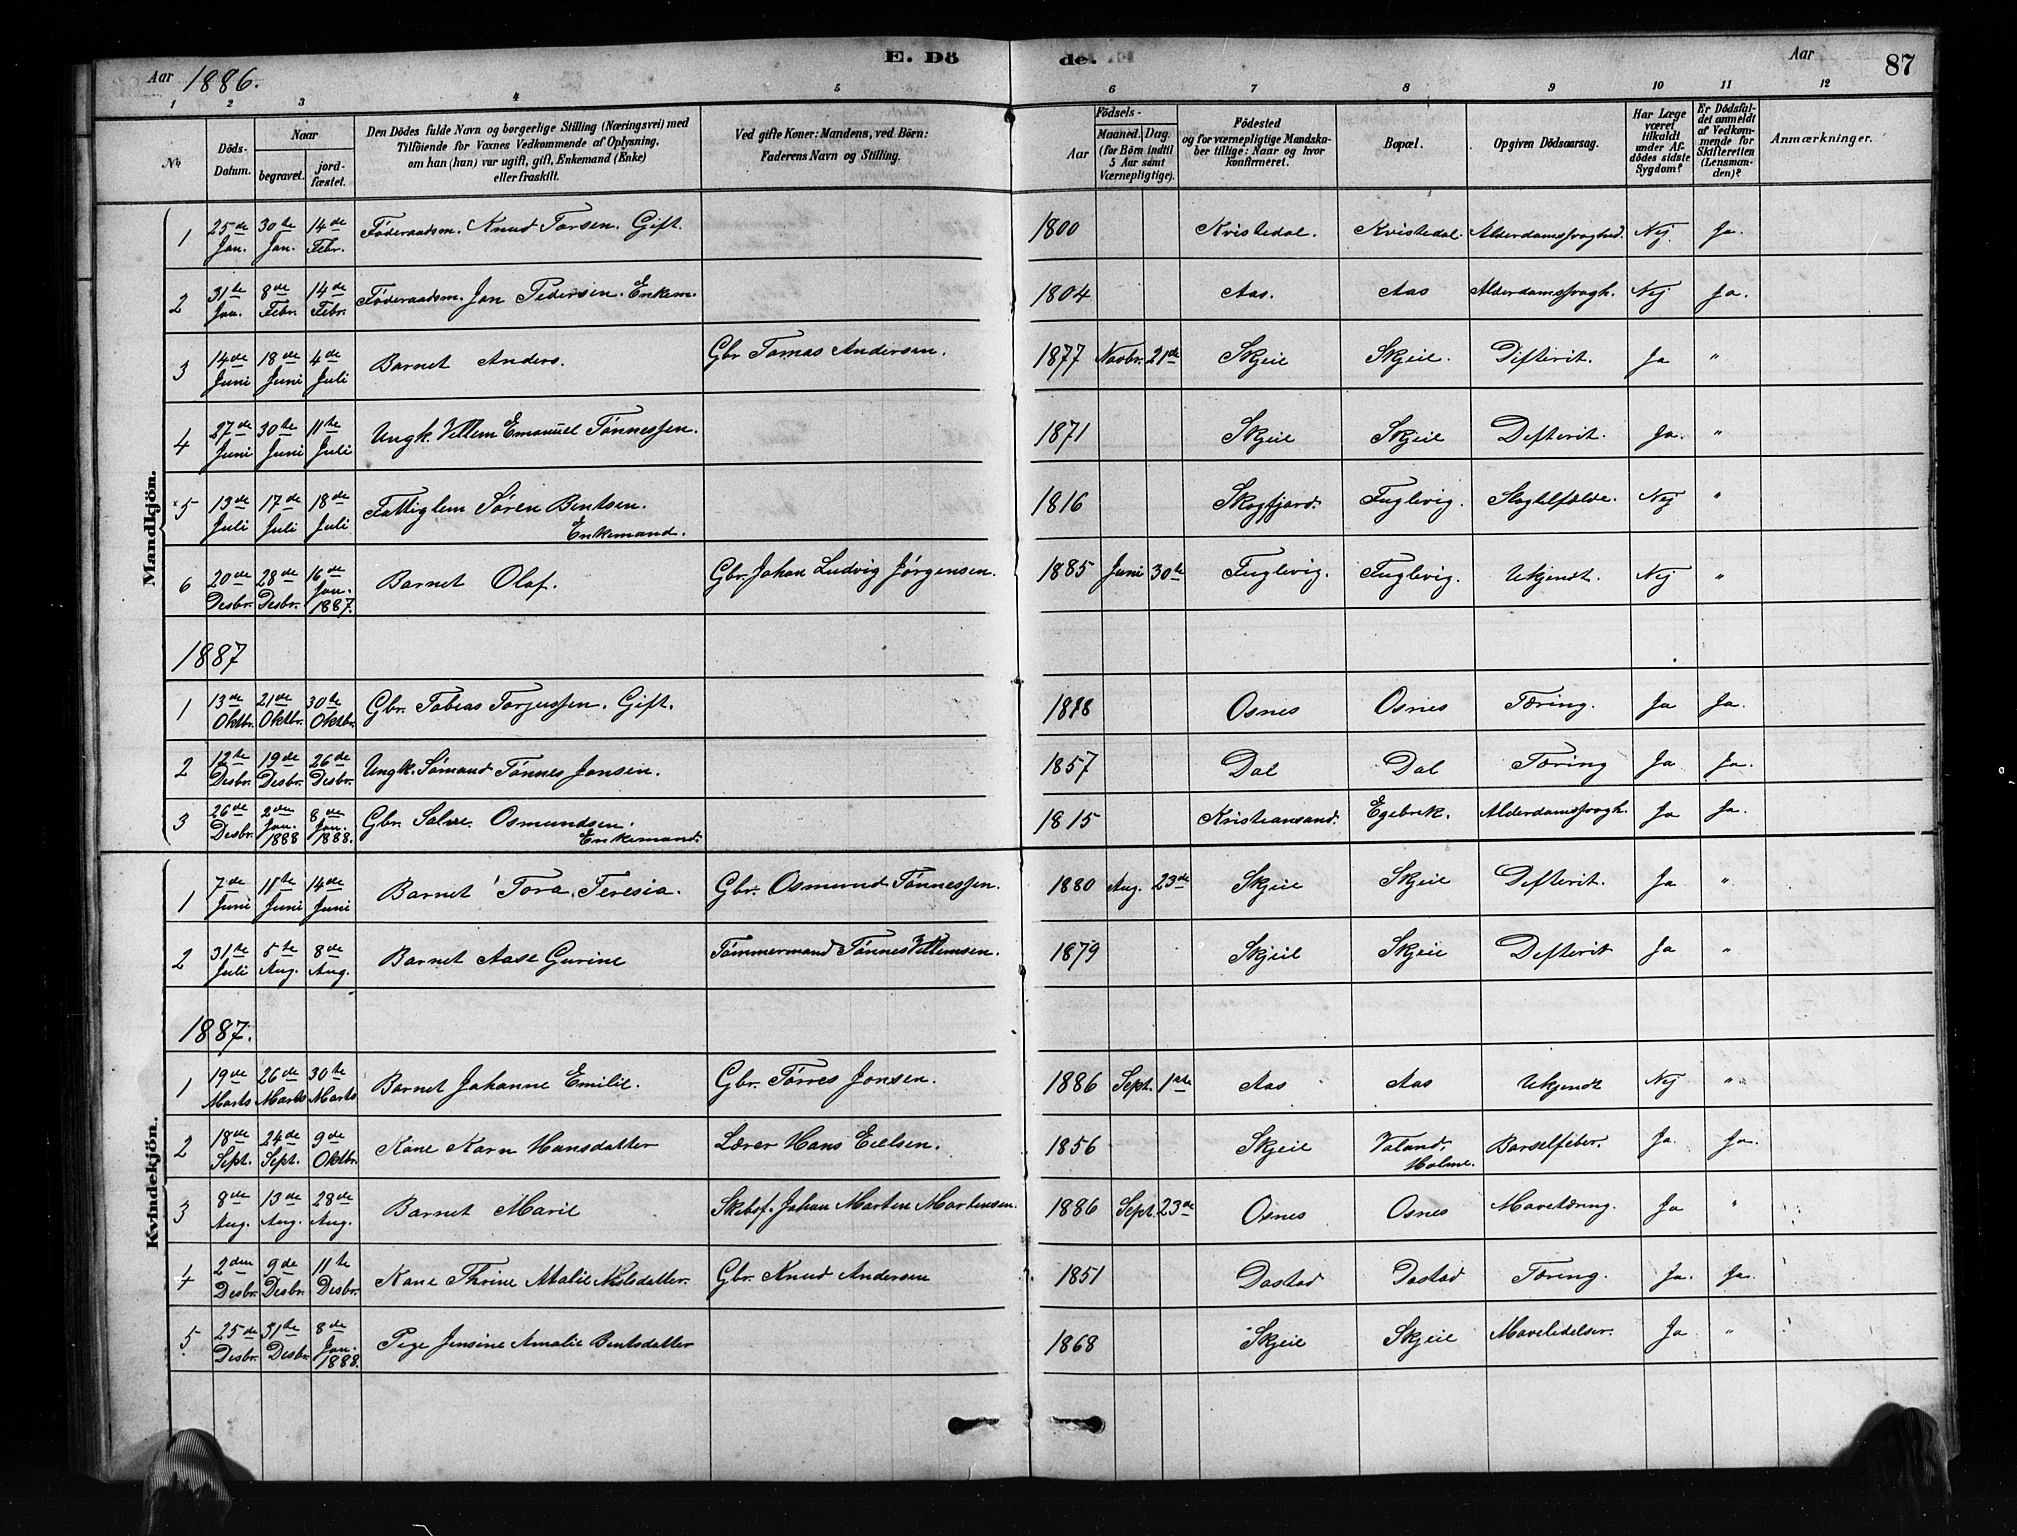 Aar 1886.
E. Dö
de.
Aar
87
1 2 3 4 5 6 7 8 9 10 11 12
No
Döds-Datum.
Naar
begravet.
jord-fæstet.
Den Dödes fulde Navn og borgerlige Stilling (Næringsvei) med
Tilföiende for Voxnes Vedkommende af Oplysning,
om han (han) var ugift, gift, Enkemand (Enke)
eller fraskilt.
Ved gifte Koner: Mandens, ved Börn:
Faderens Navn og Stilling.
Födsels-
Aar
Maaned. Dag.
(for Börn indtil
5 Aar samt
Værnepligtige).
Födested
og for værnepligtige Mandska-
ber tillige: Naar og hvor
konfirmeret.
Bopæl.
Opgiven Dödsaarsag.
Har Læge
været
tilkaldt
under Af-
dödes sidste
Sygdom?
Er Dödsfal-
det anmeldt
af Vedkom-
mende for
Skifteretten
(Lensman-
den)?
Anmærkninger.
Mandkjön.
1 25de Jan. 30te Jan. 14de Febr. Föderaadsm. Knud Torsen. Gift. 1800 Kvistedal. Kvistedal. Alderdomssvaghed. Nej. Ja.
2 31te Jan. 8de Febr. 14de Febr. Föderaadsm. Jon Pedersen. Enkem. 1804 Aas. Aas Alderdomssvagh. Nej Ja.
3 14de Juni 18de Juni 4de Juli Barnet Anders. Gbr Tomas Andersen. 1877 Novbr. 21de Skjeie Skjeie. Difterit. Ja "
4 27de Juni 30te Juni 11te Juli Ungk. Villem Emanuel Tönnessen. 1871 Skjeie Skjeie Difterit. Ja. "
5 13de Juli 17de Juli 18de Juli Fattiglem Sören Bentsen.
Enkemand. 1816 Skogfjord. Fuglevig. Slagtilfælde. Nej "
6 20de Desbr. 28de Desbr. 16de Jan. 1887. Barnet Olaf. Gbr. Johan Ludvig Jörgensen. 1885 Juni 30te Fuglevig. Fuglevig. Ukjendt. Nej "
1887
1 13de Oktbr. 21de Oktbr. 30te Oktbr. Gbr. Tobias Torjussen. Gift. 1818 Osnes Osnes Tæring. Ja Ja.
2 12te Desbr. 19de Desbr. 26de Desbr. Ungk. Sömand Tönnes Jonsen. 1857 Dal Dal Tæring Ja Ja.
3 26de Desbr. 2den Jan. 1888 8de Jan. 1888. Gbr. Salve Osmundsen.
Enkemand. 1815 Kristiansand. Egebrek. Alderdomssvagh. Ja Ja.
Kvindekjön.
1 7de Juni 11te Juni 14de Juni Barnet Tora Teresia. Gbr. Osmund Tönnessen. 1880 Aug. 23de Skjeie Skjeie Difterit. Ja "
2 31te Juli 5te Aug. 8de Aug. Barnet Aase Gurine Tömmermand Tönnes Villemsen. 1879 Skjeie Skjeie Difterit Ja "
1887.
1 19de Marts 26de Marts 30te Marts Barnet Johanne Emilie. Gbr. Törres Jonsen. 1886 Sept. 1ste Aas Aas Ukjendt Nej "
2 18de Sept. 24de Sept. 9de Oktbr. Kone Karn Hansdatter Lærer Hans Eielsen. 1856 Skjeie Valand, Holme. Barselfeber. Ja. Ja.
3 8de Aug. 13de Aug. 28de Aug. Barnet Marie Skibsf. Johan Morten Mortensen. 1886 Sept 23de Osnes Osnes Mavetæring. Ja "
4 2den Desbr. 9de Desbr. 11te Desbr. Kone Thrine Atalie Nilsdatter. Gbr. Knud Andersen 1851 Dostad Dostad Tæring. Ja. Ja.
5 25de Desbr. 31te Desbr. 8de Jan. 1888. Pige Jensine Amalie Bentsdatter 1868 Skjeie Skjeie Mavelidelser. Ja "